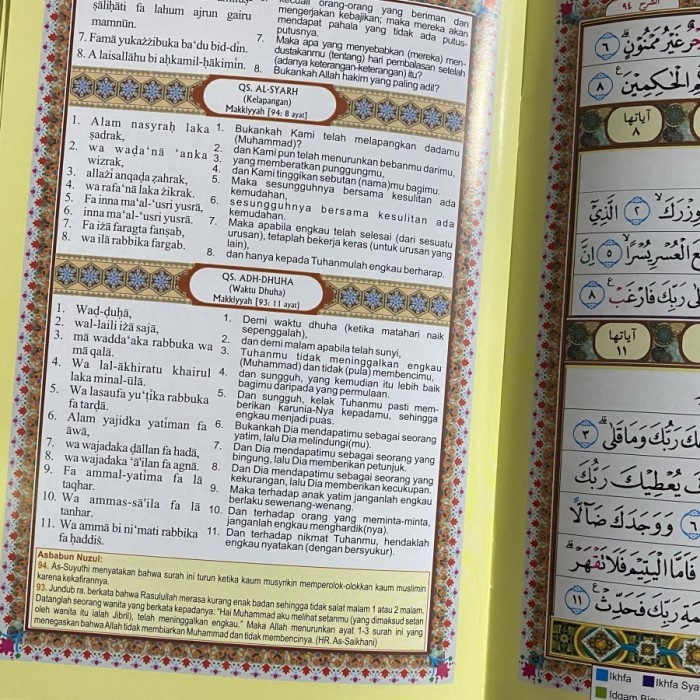 ṣāliḥāti fa lahum ajrun gairu
mamnūn.
7. Famā yukażżibuka ba‘du bid-dīn.
8. A laisallāhu bi aḥkamil-ḥākimīn.
orang-orang yang beriman dan
mengerjakan kebajikan; maka mereka akan
mendapat pahala yang tidak ada putus-
putusnya.
7. Maka apa yang menyebabkan (mereka) men-
dustakanmu (tentang) hari pembalasan setelah
(adanya keterangan-keterangan) itu?
8. Bukankah Allah hakim yang paling adil?
QS. AL-SYARH
(Kelapangan)
Makkiyyah [94: 8 ayat]
1. Alam nasyraḥ laka
ṣadrak,
2. wa waḍa‘nā ‘anka
wizrak,
3. allażī anqaḍa ẓahrak,
4. wa rafa‘nā laka żikrak.
5. Fa inna ma‘al-‘usri yusrā,
6. inna ma‘al-‘usri yusrā.
7. Fa iżā faragta fanṣab,
8. wa ilā rabbika fargab.
1. Bukankah Kami telah melapangkan dadamu
(Muhammad)?
2. dan Kami pun telah menurunkan bebanmu darimu,
3. yang memberatkan punggungmu,
4. dan Kami tinggikan sebutan (nama)mu bagimu.
5. Maka sesungguhnya bersama kesulitan ada
kemudahan,
6. sesungguhnya bersama kesulitan ada
kemudahan.
7. Maka apabila engkau telah selesai (dari sesuatu
urusan), tetaplah bekerja keras (untuk urusan yang
lain),
8. dan hanya kepada Tuhanmulah engkau berharap.
QS. ADH-DHUHA
(Waktu Dhuha)
Makkiyyah [93: 11 ayat]
1. Waḍ-ḍuḥā,
2. wal-laili iżā sajā,
3. mā wadda‘aka rabbuka wa
mā qalā.
4. Wa lal-ākhiratu khairul
laka minal-ūlā.
5. Wa lasaufa yu‘ṭīka rabbuka
fa tarḍā.
6. Alam yajidka yatīman fa
āwā,
7. wa wajadaka ḍāllan fa hadā,
8. wa wajadaka ‘ā'ilan fa agnā.
9. Fa ammal-yatīma fa lā
taqhar.
10. Wa ammas-sā'ila fa lā
tanhar.
11. Wa ammā bi ni‘mati rabbika
fa ḥaddiṡ.
1. Demi waktu dhuha (ketika matahari naik
sepenggalah),
2. dan demi malam apabila telah sunyi,
3. Tuhanmu tidak meninggalkan engkau
(Muhammad) dan tidak (pula) membencimu,
4. dan sungguh, yang kemudian itu lebih baik
bagimu daripada yang permulaan.
5. Dan sungguh, kelak Tuhanmu pasti mem-
berikan karunia-Nya kepadamu, sehingga
engkau menjadi puas.
6. Bukankah Dia mendapatimu sebagai seorang
yatim, lalu Dia melindungi(mu).
7. Dan Dia mendapatimu sebagai seorang yang
bingung, lalu Dia memberikan petunjuk.
8. Dan Dia mendapatimu sebagai seorang yang
kekurangan, lalu Dia memberikan kecukupan.
9. Maka terhadap anak yatim janganlah engkau
berlaku sewenang-wenang.
10. Dan terhadap orang yang meminta-minta,
janganlah engkau menghardik(nya).
11. Dan terhadap nikmat Tuhanmu, hendaklah
engkau nyatakan (dengan bersyukur).
Asbabun Nuzul:
94. As-Suyuthi menyatakan bahwa surah ini turun ketika kaum musyrikin memperolok-olokkan kaum muslimin
karena kekafirannya.
93. Jundub ra. berkata bahwa Rasulullah merasa kurang enak badan sehingga tidak salat malam 1 atau 2 malam.
Datanglah seorang wanita yang berkata kepadanya: "Hai Muhammad aku melihat setanmu (yang dimaksud setan
oleh wanita itu ialah Jibril), telah meninggalkan engkau." Maka Allah menurunkan ayat 1-3 surah ini yang
menegaskan bahwa Allah tidak membiarkan Muhammad dan tidak membencinya. (HR. As-Saikhani)
الشرح ٩٤
غَيْرُ مَمْنُوْنٍ ٦
الْحٰكِمِيْنَ ٨
آياتها
٨
وِزْرَكَ ٢ الَّذِيْٓ
الْعُسْرِ يُسْرًا ٥ اِنَّ
رَبِّكَ فَارْغَبْ ٨
آياتها
١١
رَبُّكَ وَمَا قَلٰى ٣
يُعْطِيْكَ رَبُّكَ
٦ وَوَجَدَكَ ضَاۤلًّا
فَاَمَّا الْيَتِيْمَ فَلَا تَقْهَرْ
رَبِّكَ فَحَدِّثْ ١١
Ikhfa
Ikhfa Sya
Idgam